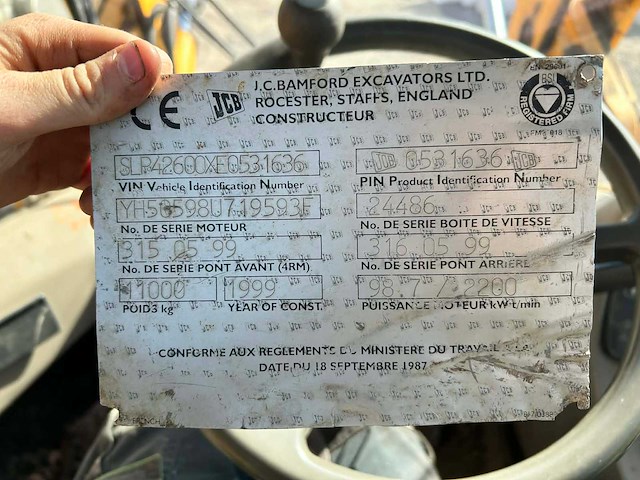 J.C.BAMFORD EXCAVATORS LTD.
ROCESTER, STAFFS, ENGLAND
CONSTRUCTEUR
CE
JCB
BSI
REGISTERED FIRM
SLP42600XE0531636
VIN Vehicle Identification Number
JCB 0531636 JCB
PIN Product Identification Number
YH50598U719593E
No. DE SERIE MOTEUR
24486
No. DE SERIE BOITE DE VITESSE
315 05 99
No. DE SERIE PONT AVANT (4RM)
316 05 99
No. DE SERIE PONT ARRIERE
11000
POIDS kg
1999
YEAR OF CONST.
98.7 / 2200
PUISSANCE MOTEUR kW t/min
CONFORME AUX REGLEMENTS DU MINISTERE DU TRAVAIL
DATE DU 18 SEPTEMBRE 1987